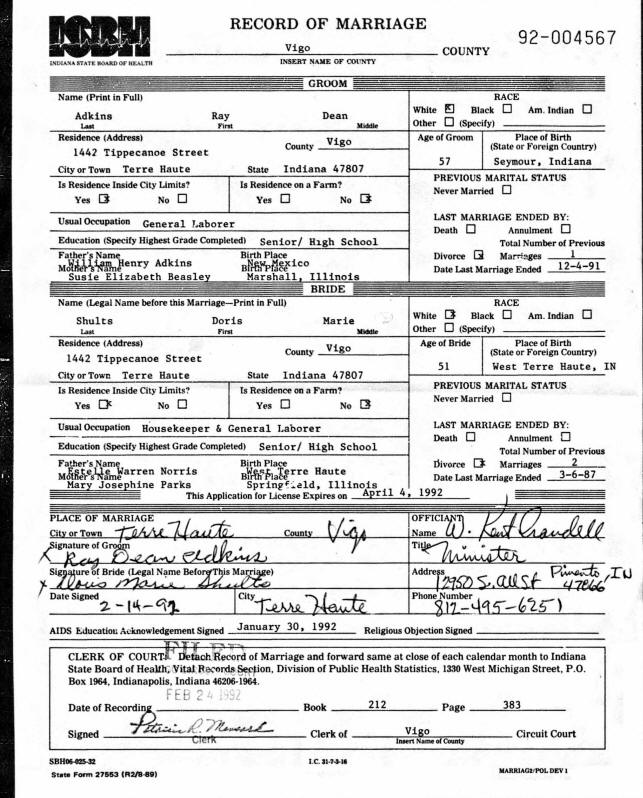 ISBH
INDIANA STATE BOARD OF HEALTH
RECORD OF MARRIAGE
92-004567
Vigo COUNTY
INSERT NAME OF COUNTY
GROOM
Name (Print in Full)
Adkins Ray Dean
Last First Middle
RACE
White ☒ Black ☐ Am. Indian ☐
Other ☐ (Specify)
Residence (Address)
1442 Tippecanoe Street
County Vigo
City or Town Terre Haute State Indiana 47807
Age of Groom
57
Place of Birth
(State or Foreign Country)
Seymour, Indiana
Is Residence Inside City Limits?
Yes ☒ No ☐
Is Residence on a Farm?
Yes ☐ No ☒
PREVIOUS MARITAL STATUS
Never Married ☐
Usual Occupation General Laborer
Education (Specify Highest Grade Completed) Senior/ High School
LAST MARRIAGE ENDED BY:
Death ☐ Annulment ☐
Total Number of Previous
Divorce ☒ Marriages 1
Date Last Marriage Ended 12-4-91
Father's Name Birth Place
William Henry Adkins New Mexico
Mother's Name Birth Place
Susie Elizabeth Beasley Marshall, Illinois
BRIDE
Name (Legal Name before this Marriage—Print in Full)
Shults Doris Marie
Last First Middle
RACE
White ☒ Black ☐ Am. Indian ☐
Other ☐ (Specify)
Residence (Address)
1442 Tippecanoe Street
County Vigo
City or Town Terre Haute State Indiana 47807
Age of Bride
51
Place of Birth
(State or Foreign Country)
West Terre Haute, IN
Is Residence Inside City Limits?
Yes ☒ No ☐
Is Residence on a Farm?
Yes ☐ No ☒
PREVIOUS MARITAL STATUS
Never Married ☐
Usual Occupation Housekeeper & General Laborer
Education (Specify Highest Grade Completed) Senior/ High School
LAST MARRIAGE ENDED BY:
Death ☐ Annulment ☐
Total Number of Previous
Divorce ☒ Marriages 2
Date Last Marriage Ended 3-6-87
Father's Name Birth Place
Estelle Warren Norris West Terre Haute
Mother's Name Birth Place
Mary Josephine Parks Springfield, Illinois
This Application for License Expires on April 4, 1992
PLACE OF MARRIAGE
City or Town Terre Haute County Vigo
OFFICIANT
Name W. Kent Crandell
Signature of Groom
X Ray Dean Adkins
Title Minister
Signature of Bride (Legal Name Before This Marriage)
X Doris Marie Shults
Address 12950 S. All St Pimento, IN
47866
Date Signed 2-14-92
City Terre Haute
Phone Number
812-495-6251
AIDS Education Acknowledgement Signed January 30, 1992 Religious Objection Signed
FILED
CLERK OF COURT: Detach Record of Marriage and forward same at close of each calendar month to Indiana
State Board of Health, Vital Records Section, Division of Public Health Statistics, 1330 West Michigan Street, P.O.
Box 1964, Indianapolis, Indiana 46206-1964.
FEB 24 1992
Date of Recording Book 212 Page 383
Signed Patricia R. Mansard Clerk of Vigo Circuit Court
Clerk Insert Name of County
SBH06-025-32 I.C. 31-7-3-16
State Form 27553 (R2/8-89) MARRIAG2/POL DEV 1